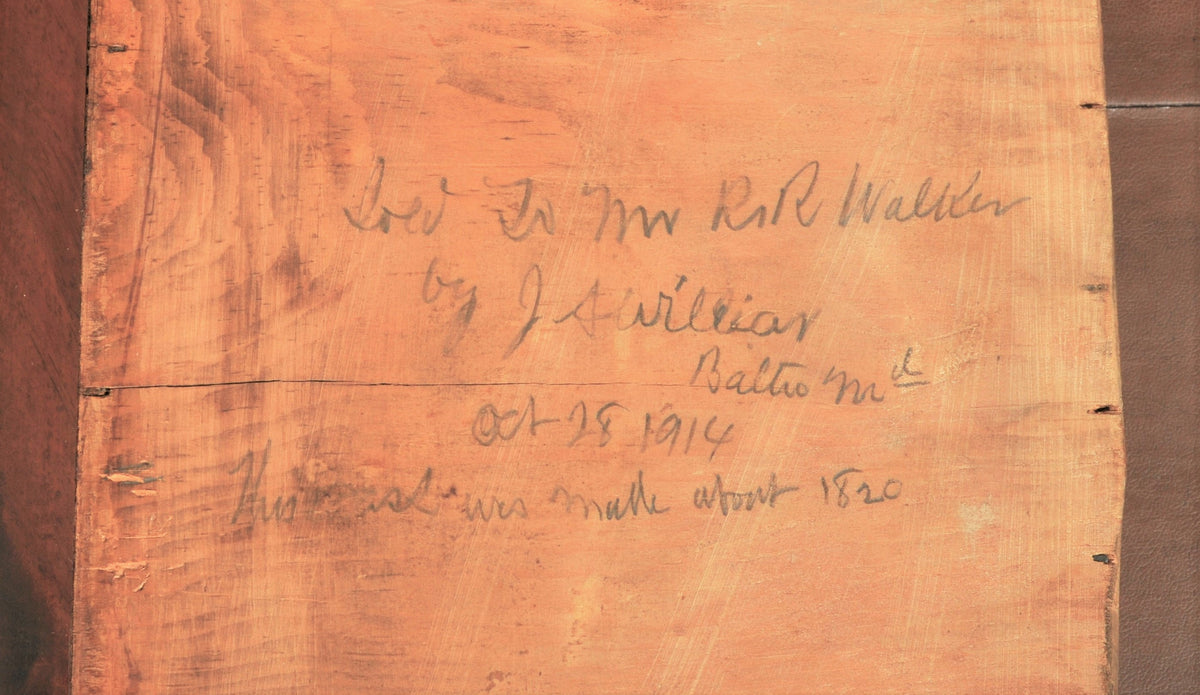 Sold To Mr R.R Walker
by J A Williar
Balto Md
Oct 28 1914
This desk was made about 1820